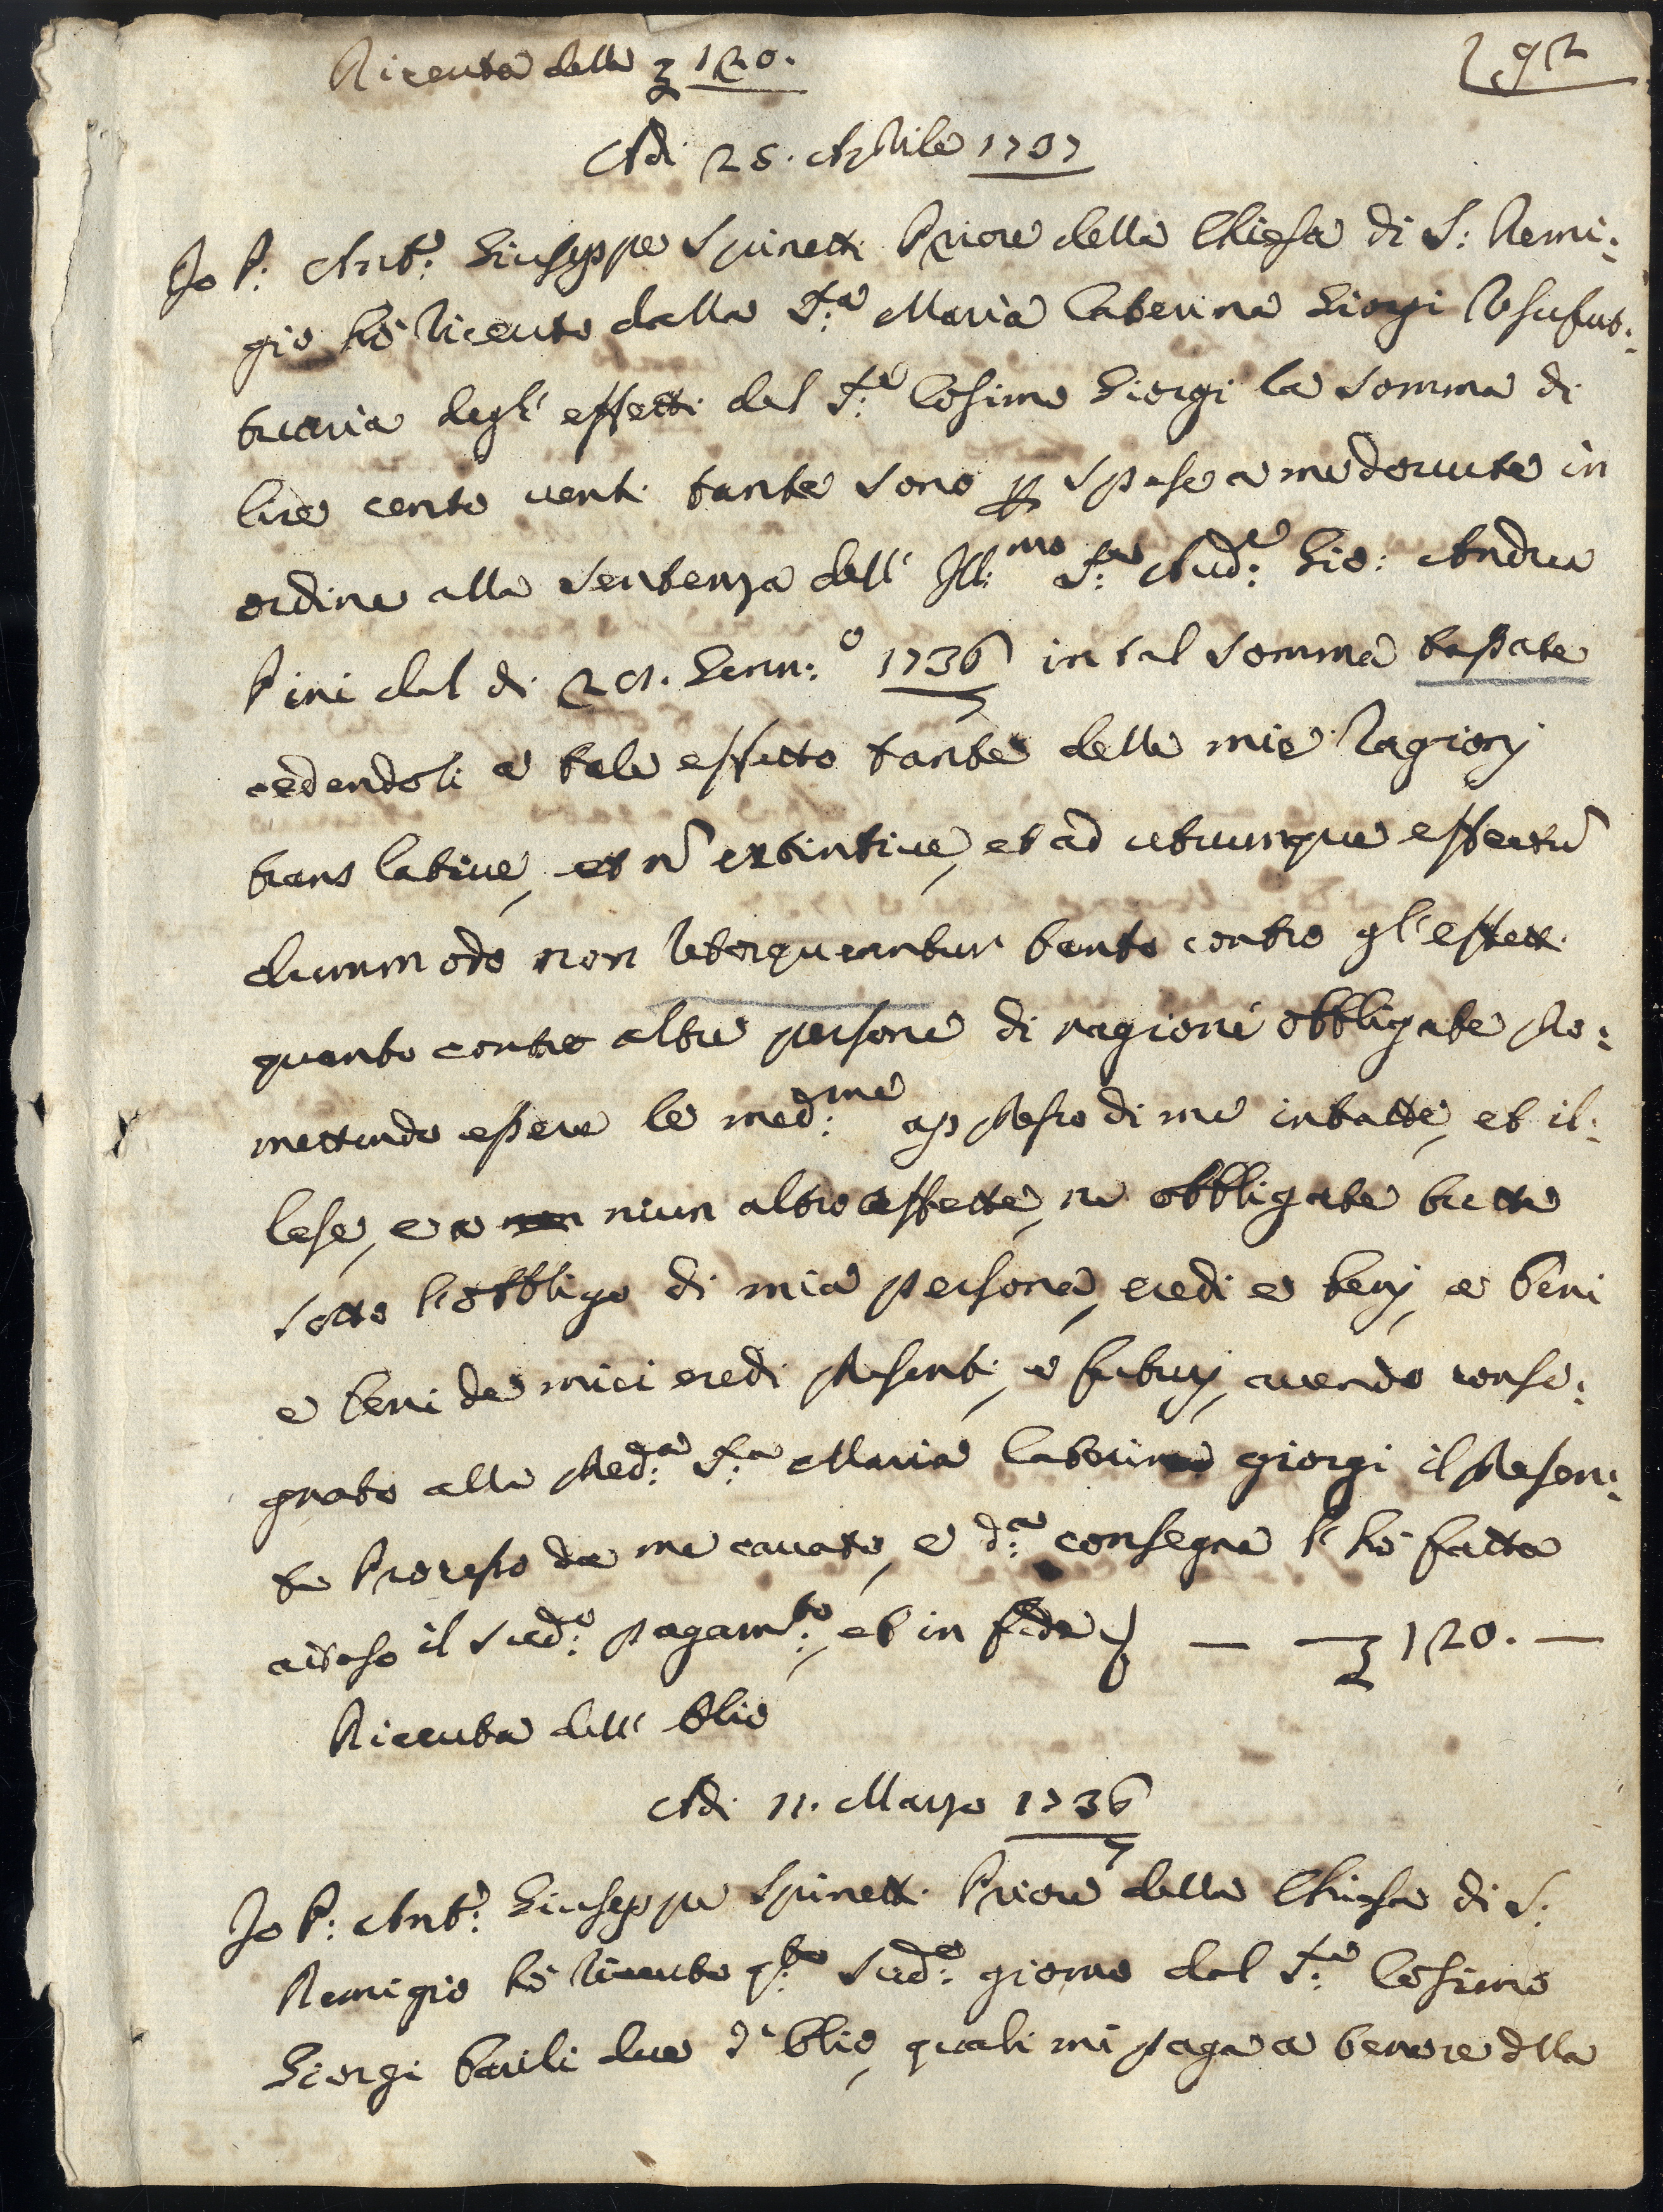 Riceuta delle ʒ 120.
192
Adi 25. Aprile 1737
Io P: Ant:o Giuseppe Spinetti Priore della Chiesa di S: Remi:
gio hò riceuto dalla S:ra Maria Caterina Giorgi Vsufrut:
tuaria degl' effetti del S:re Cosimo Giorgi la somma di
lire cento venti tante sono p spese a me dovute in
ordine alla sentenza dell' Ill:mo S:re Aud:re Gio: Andrea
Pini del dì 21. Genn:o 1736/7 in tal somma tassate
cedendoli a tale effetto tante delle mie ragionj
translative, et ñ extintive, et ad utrumque effectũ
dummodo non retorqueantur tanto contro gl'effetti
quanto contro altre persone di ragione obbligate pro:
mettendo essere le med:me appresso di me intatte, et il:
lese, e a non niun altro affette, ne obbligate tutto
sotto l'obbligo di mia persona, eredi e benj, e beni
e beni de miei eredi presenti, e futurj, avendo conse:
gnato alla pred:a S:ra Maria Caterina giorgi il presen:
te Processo da me cavato, e d:a consegna l'hò fatta
atteso il sud:o pagam:to, et in fede — ʒ 120. —
Riceuta dell' Olio
Adi 11. Marzo 1736/7
Io P: Ant:o Giuseppe Spinetti Priore della Chiesa di S:
Remigio hò riceuto q:to sud:o giorno dal S:re Cosimo
Giorgi barili due d'olio, quali mi paga a tenore dlla